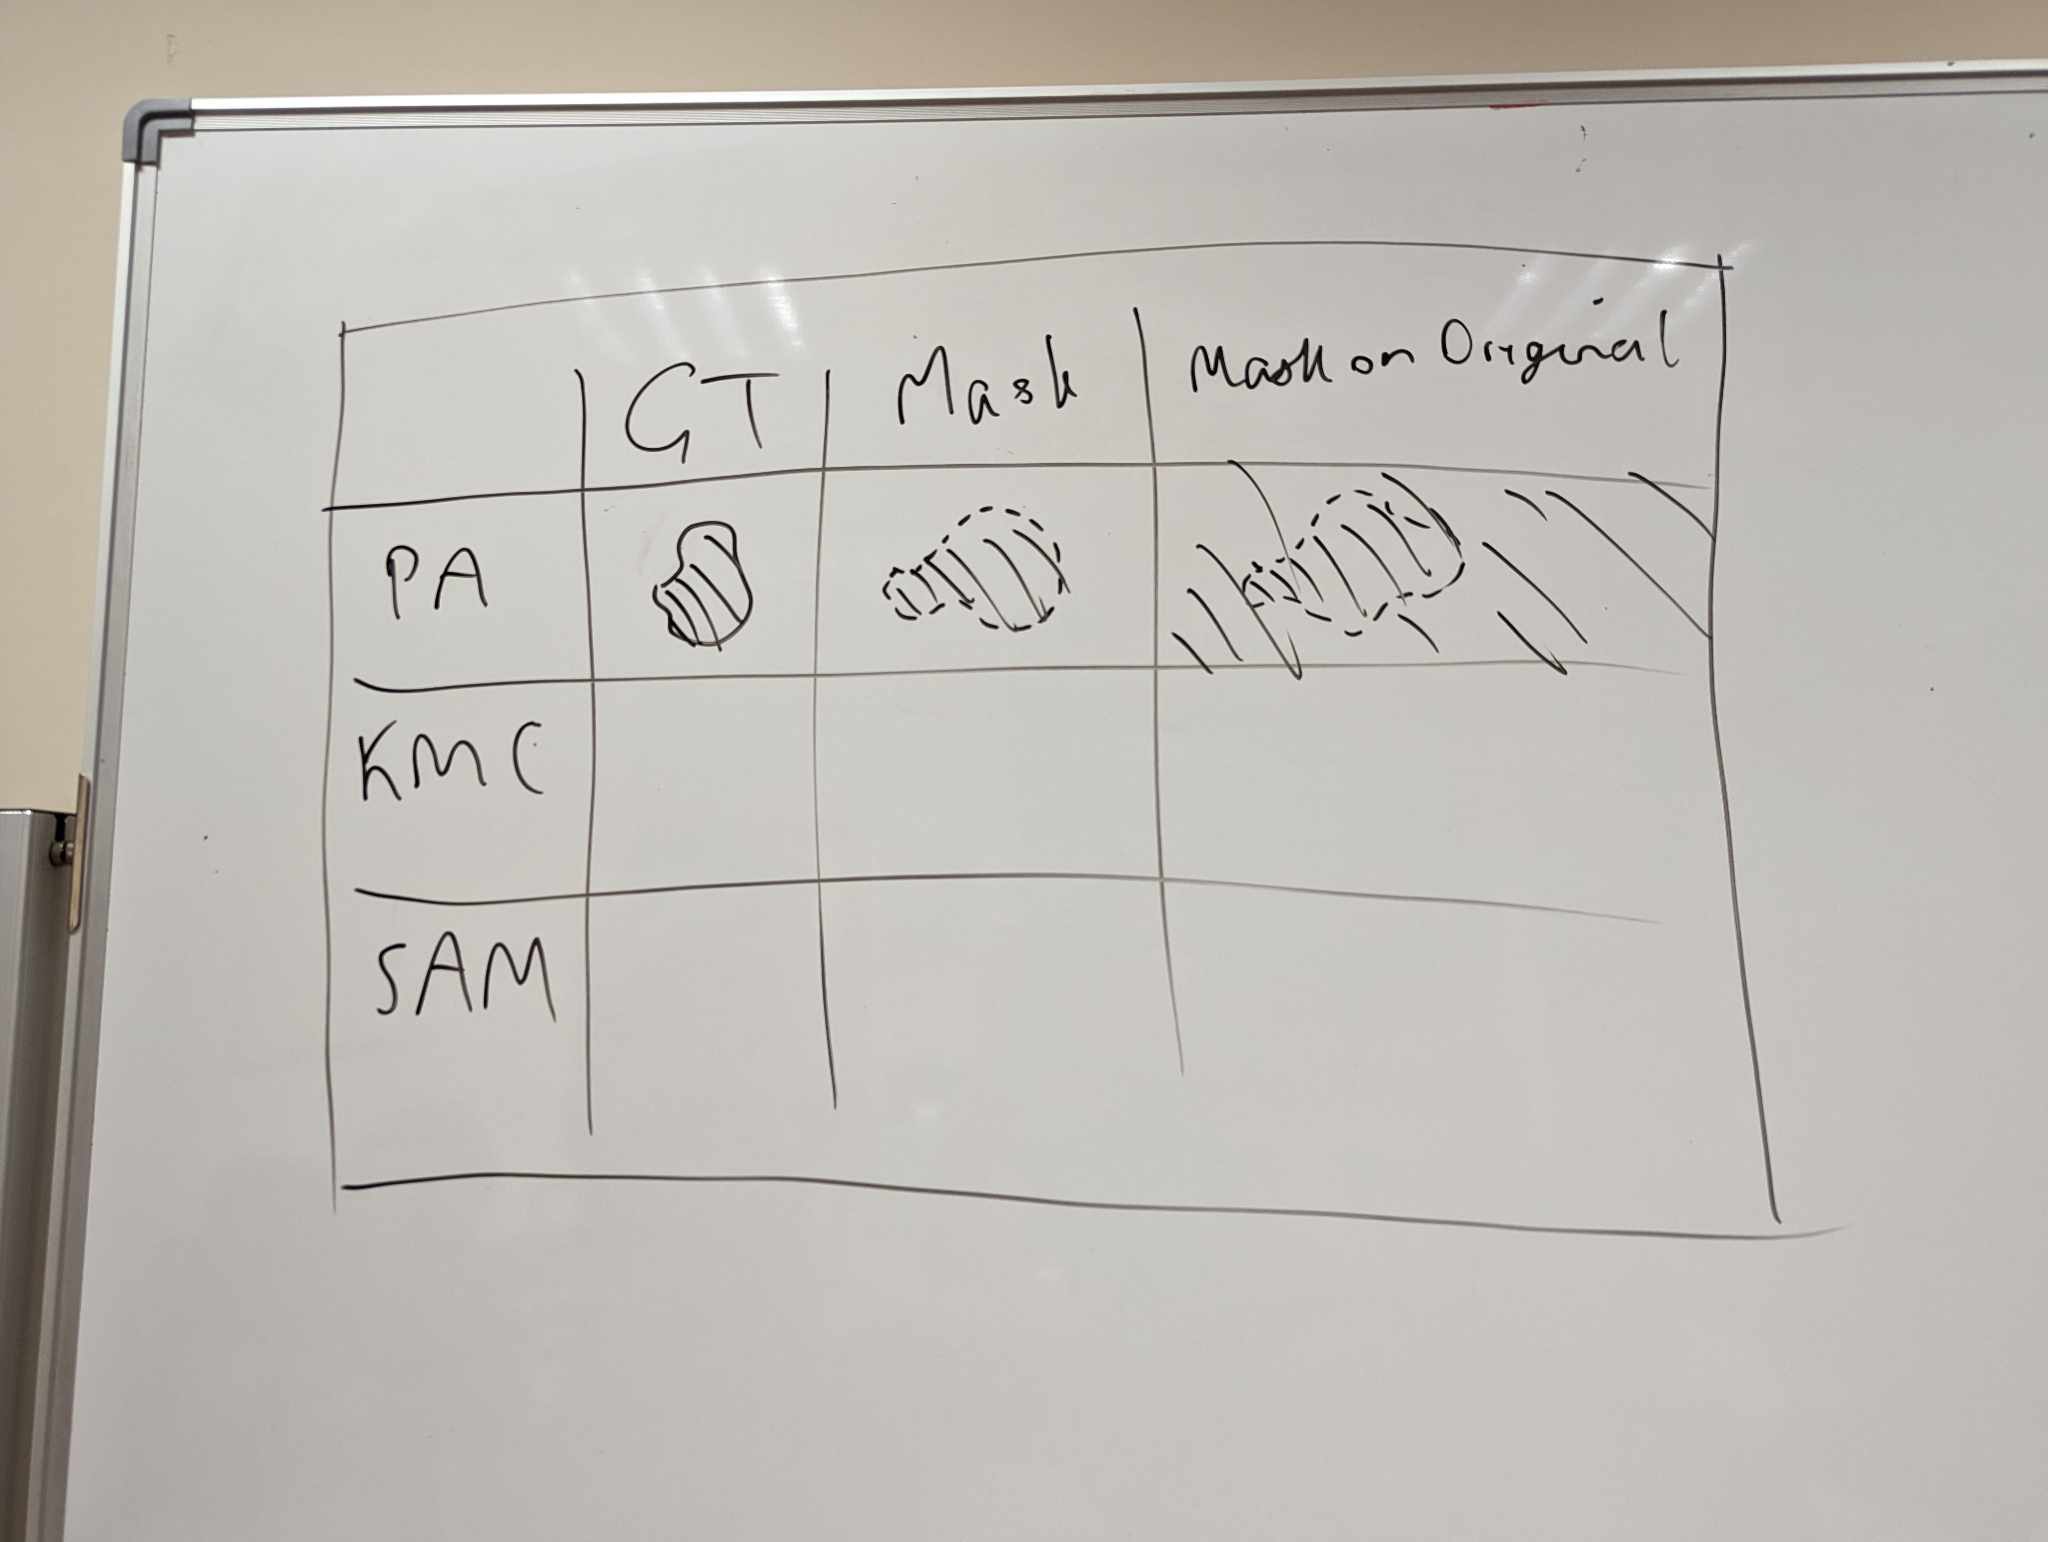 GT Mask Mask on Original
PA
KMC
SAM